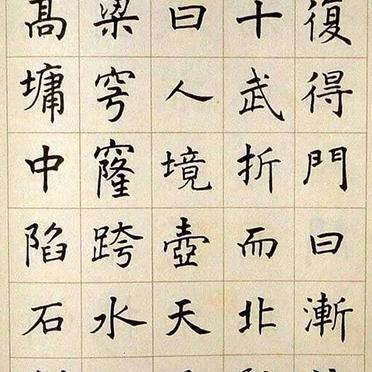 復得門曰漸
十武折而北
曰人境壺天
梁穹窿跨水
高墉中陷石